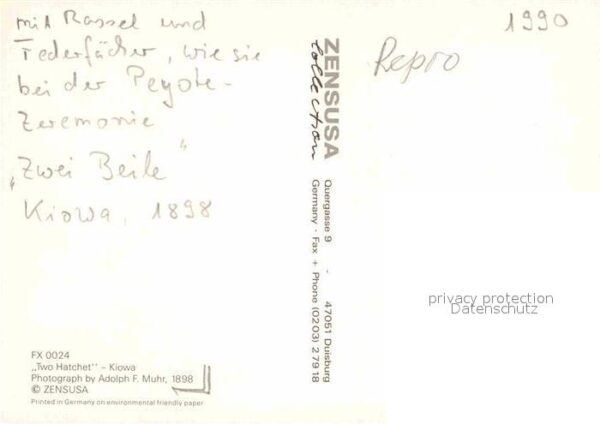 mit Rassel und
Federfächer, wie sie
bei der Peyote-
Zeremonie
„Zwei Beile"
Kiowa, 1898
1990
Repro
ZENSUSA
Collection
Quergasse 9 · 47051 Duisburg
Germany · Fax + Phone (0203) 2 79 18
privacy protection
Datenschutz
FX 0024
„Two Hatchet" – Kiowa
Photograph by Adolph F. Muhr, 1898
© ZENSUSA
Printed in Germany on environmental friendly paper